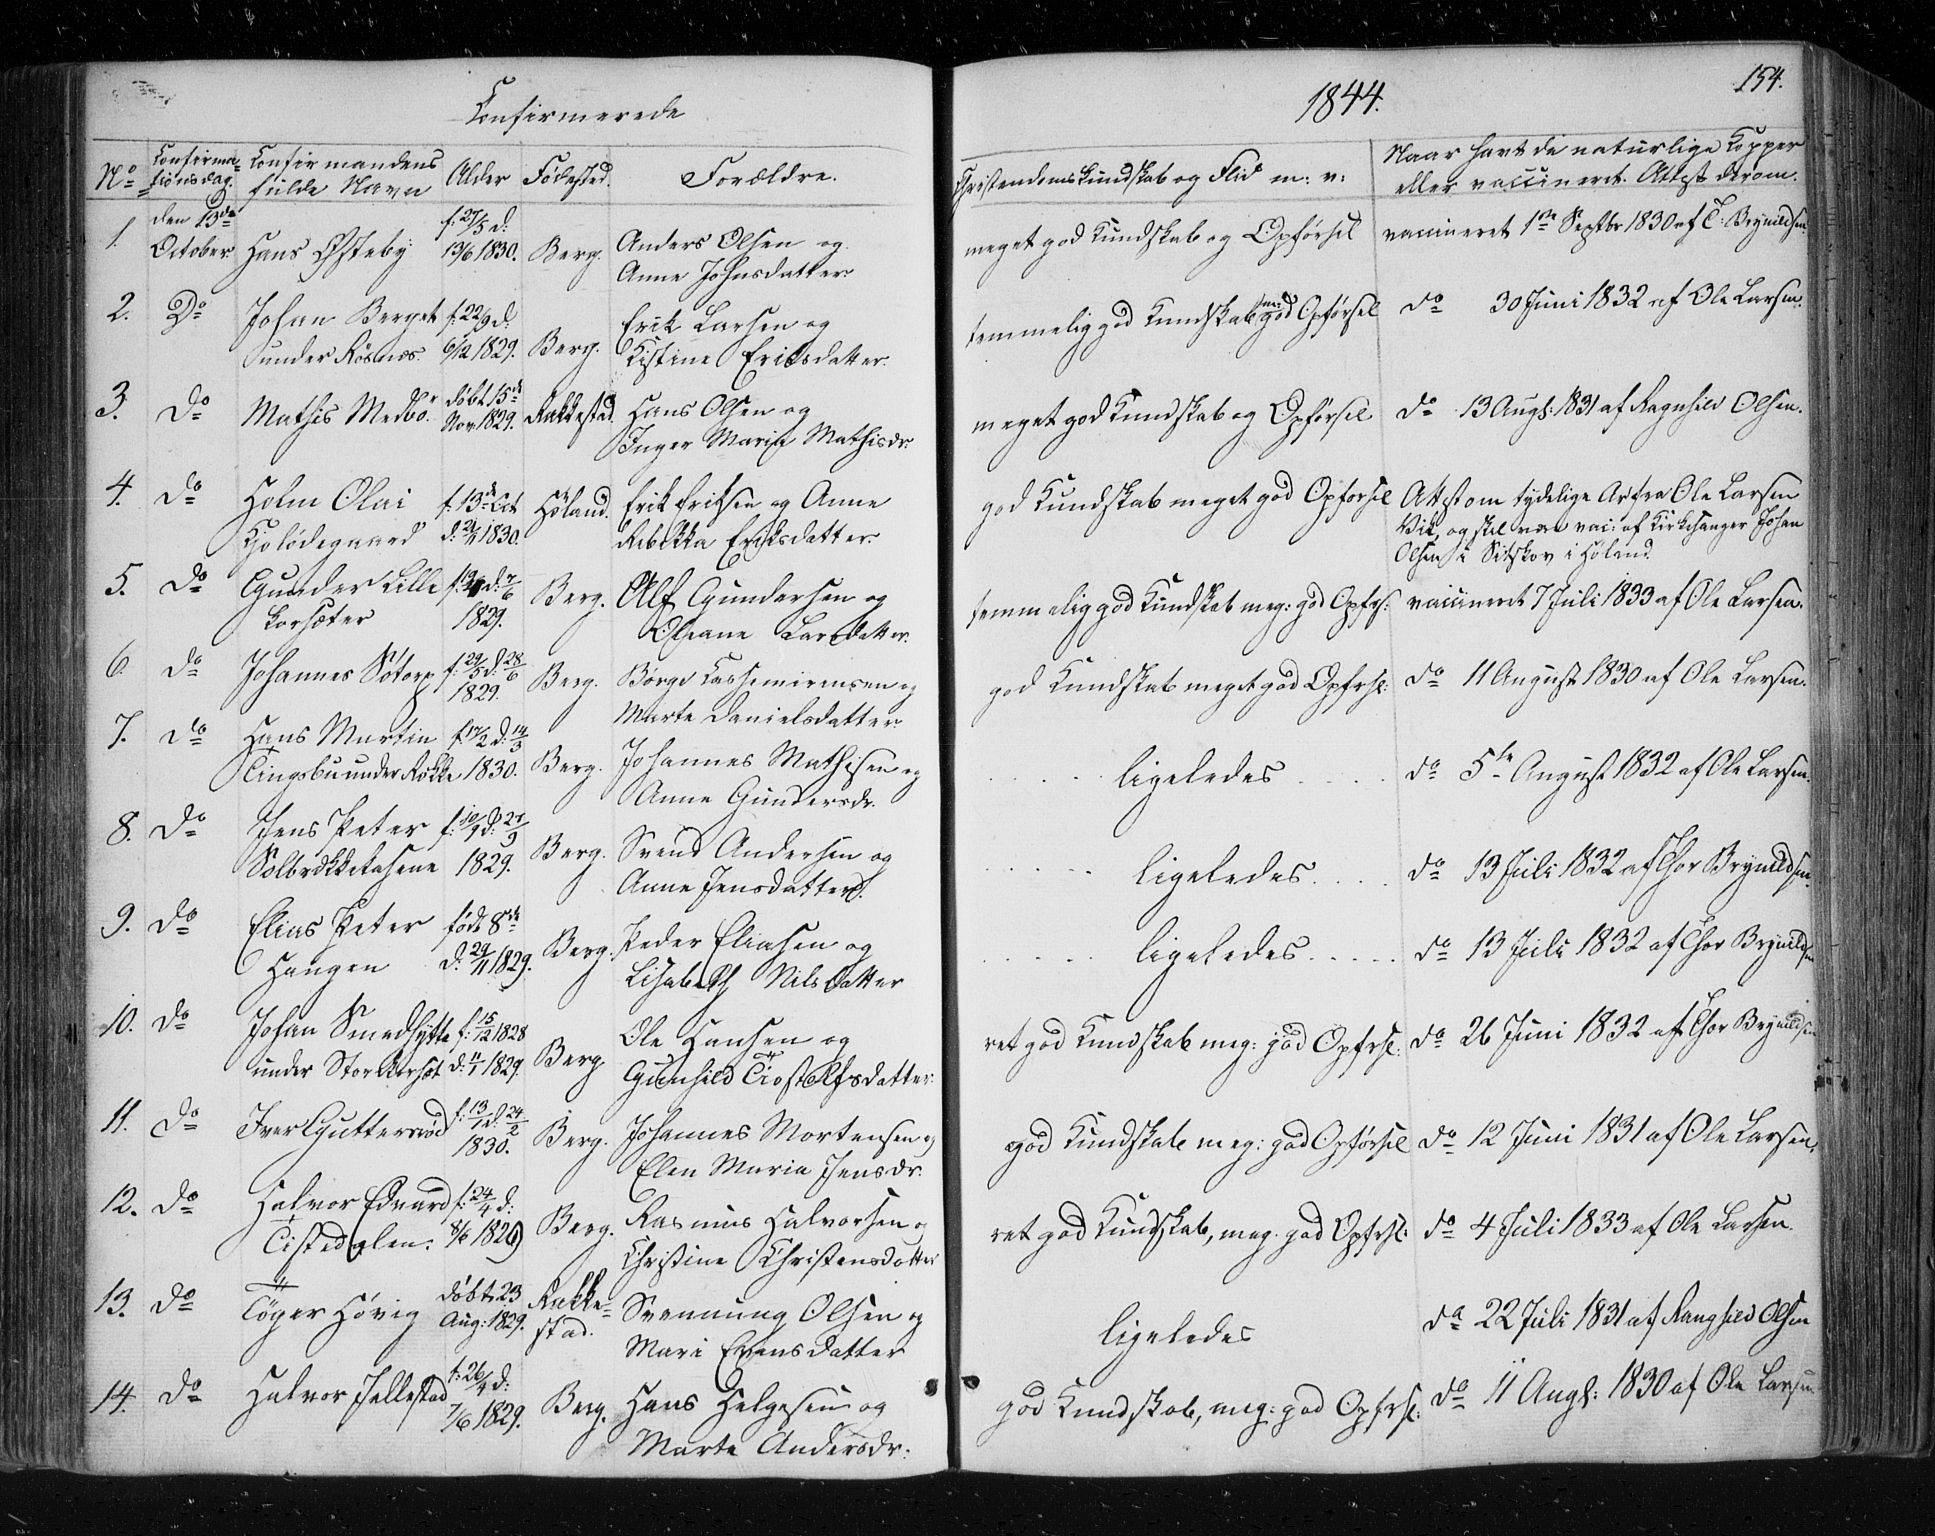 Confirmerede
1844.
154.
No Confirmationsdag. Confirmandens fulde Navn Alder Fødested. Forældre. Christendomskundskab og Flid m: v: Naar havt de naturlige Kopper eller vaccineret. Attest derom.
1. den 13de October Hans Østeby f: 27/5 d: 13/6 1830. Berg. Anders Olsen og Anne Johnsdatter. meget god Kundskab og Opførsel vaccineret 1ste Septbr 1830 af T: Brynildsen.
2. Do Johan Berget under Røsnæs. f: 22/9 d: 6/12 1829. Berg. Erik Larsen og Kistine Eriksdatter. temmelig god Kundskab meg: god Opførsel do 30 Juni 1832 af Ole Larsen.
3. do Mathis Medbö. döbt 15de Nov: 1829. Rakkestad. Hans Olsen og Inger Maria Mathisdr. meget god Kundskab og Opførsel do 13 Augs: 1831 af Ragnhild Olsen.
4. do Holm Olai Kjolödegaard f: 13de Oct d: 21/11 1830. Höland. Erik Eriksen og Anne Rebekka Eriksdatter. god Kundskab meget god Opførsel Attest om tydelige Ar fra Ole Larsen Vik, og skal være vac: af Kirkesanger Johan Olsen i Sitskov i Höland.
5. do Gunder Lille Korsæter d: 7/6 1829. Berg. Olf Gundersen og Oleane Larsdatter. temmelig god Kundskab meg: god Opfrs: vaccineret 7 Juli 1833 af Ole Larsen.
6. do Johannes Sötorp f: 29/5 d: 28/6 1829. Berg. Börge Cashemirensen og Marte Danielsdatter god Kundskab meget god Opfrsl: do 11 August 1830 af Ole Larsen.
7. do Hans Martin Tingsbu under Rökke f: 17/2 d: 14/3 1830. Berg. Johannes Mathisen og Anne Gundersdr. ligeledes do 5te August 1832 af Ole Larsen.
8. Do Jens Peter Solbrækkekasene f: 10/9 d: 27/9 1829. Berg. Svend Andersen og Anne Jensdatter. ligeledes do 13 Juli 1832 af Thor Brynildsen.
9. do Elias Peter Hangen født 8de d: 29/11 1829. Berg. Peder Eliasen og Lisabeth Nilsdatter ligeledes do 13 Juli 1832 af Thor Brynildsen
10. do Johan Smedhytte under Stor Korsæt f: 15/12 1828 d: 11/1 1829. Berg Ole Hansen og Gunhild Tiostolfsdatter. ret god Kundskab meg: god Opfrsl: do 26 Juni 1832 af Thor Brynildsen
11. do Iver Guttersröd f: 13/1 d: 24/2 1830. Berg. Johannes Mortensen og Elen Maria Jensdr. god Kundskab meg: god Opførsel do 12 Juni 1831 af Ole Larsen.
12. do Halvor Edvard Tistedalen. f: 24/4 d: 8/6 1829 Berg. Rasmus Halvorsen og Christine Christensdatter ret god Kundskab, meg. god Opfrsl: do 4 Juli 1833 af Ole Larsen.
13. do Töger Hövig döbt 23 Aug: 1829. Rakkestad. Svennung Olsen og Mari Evensdatter ligeledes do 22 Juli 1831 af Ranghild Olsen
14. do Halvor Jellestad f: 26/4 d: 7/6 1829. Berg. Hans Helgesen og Marte Andersdr: god Kundskab, meg: god Opfrsl: do 11 Augs: 1830 af Ole Larsen